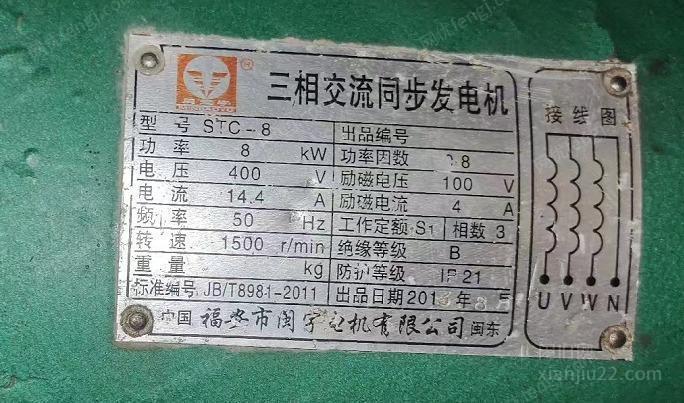 三相交流同步发电机
型号 STC-8 出品编号
功率 8 kW 功率因数 0.8
电压 400 V 励磁电压 100 V
电流 14.4 A 励磁电流 4 A
频率 50 Hz 工作定额 S1 相数 3
转速 1500 r/min 绝缘等级 B
重量 kg 防护等级 IP21
标准编号 JB/T8981-2011 出品日期 201 年 8 月
中国 福安市闽宇电机有限公司 闽东
接线图
U V W N
xianjiu22.com